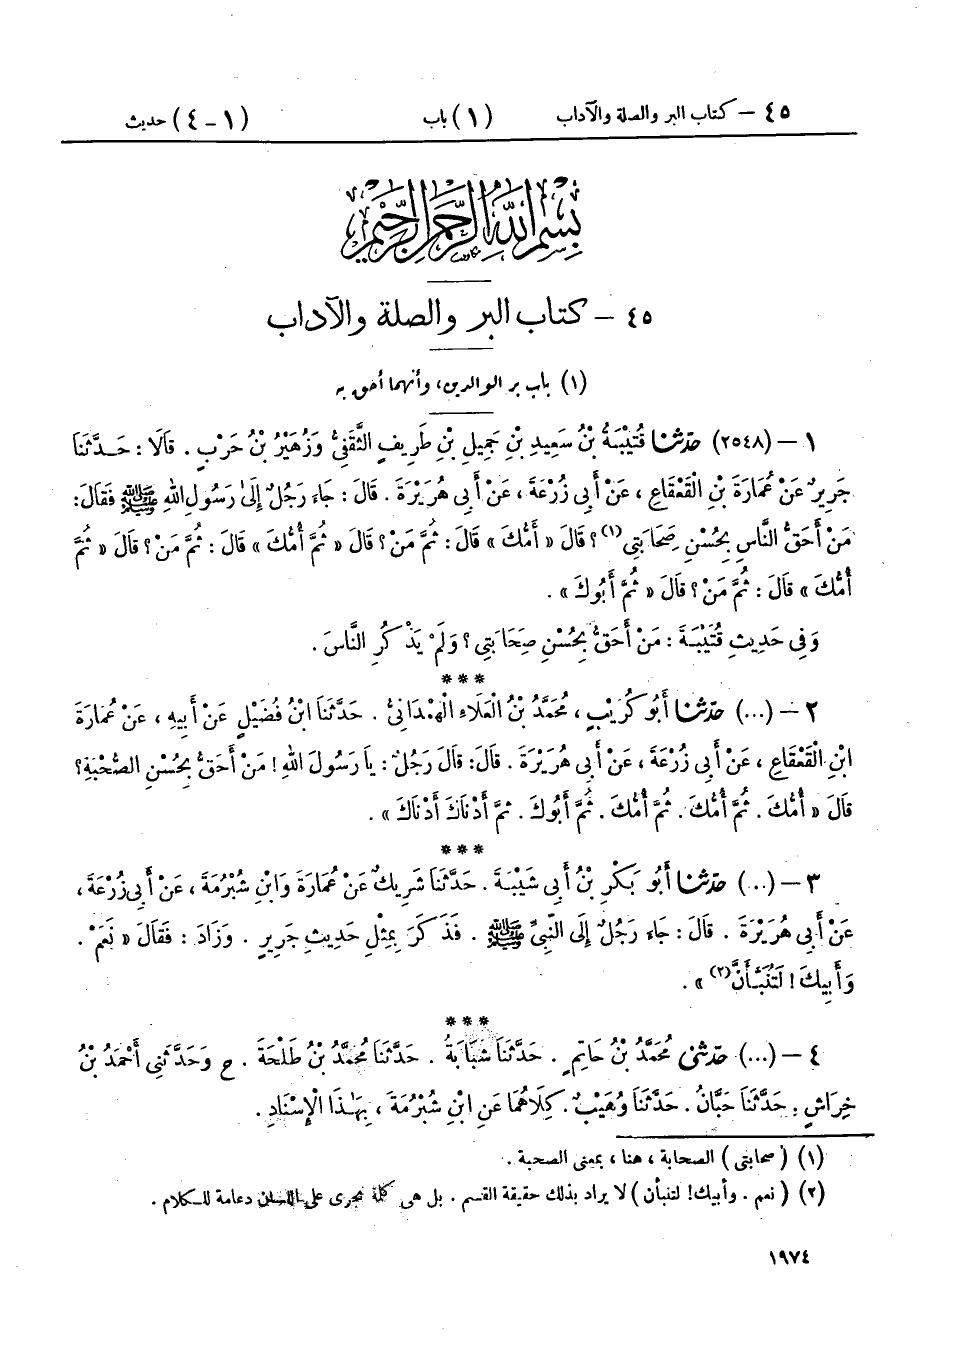 ٤٥ – كتاب البر والصلة والآداب (١) باب (١ – ٤) حديث
بسم الله الرحمن الرحيم
٤٥ – كتاب البر والصلة والآداب
(١) باب بر الوالدين، وأنهما أحق به
١ – (٢٥٤٨) حدثنا قُتَيْبَةُ بْنُ سَعِيدِ بْنِ جَمِيلِ بْنِ طَرِيفٍ الثَّقَفِيُّ وَزُهَيْرُ بْنُ حَرْبٍ . قَالَا : حَدَّثَنَا
جَرِيرٌ عَنْ عُمَارَةَ بْنِ الْقَعْقَاعِ ، عَنْ أَبِي زُرْعَةَ ، عَنْ أَبِي هُرَيْرَةَ . قَالَ : جَاءَ رَجُلٌ إِلَىٰ رَسُولِ اللهِ ﷺ فَقَالَ:
مَنْ أَحَقُّ النَّاسِ بِحُسْنِ صَحَابَتِي(١) ؟ قَالَ « أُمُّكَ » قَالَ : ثُمَّ مَنْ ؟ قَالَ « ثُمَّ أُمُّكَ » قَالَ : ثُمَّ مَنْ ؟ قَالَ « ثُمَّ
أُمُّكَ » قَالَ : ثُمَّ مَنْ ؟ قَالَ « ثُمَّ أَبُوكَ » .
وَفِي حَدِيثِ قُتَيْبَةَ : مَنْ أَحَقُّ بِحُسْنِ صَحَابَتِي ؟ وَلَمْ يَذْكُرِ النَّاسَ .
***
٢ – (...) حدثنا أَبُو كُرَيْبٍ ، مُحَمَّدُ بْنُ الْعَلَاءِ الْهَمْدَانِيُّ . حَدَّثَنَا ابْنُ فُضَيْلٍ عَنْ أَبِيهِ ، عَنْ عُمَارَةَ
ابْنِ الْقَعْقَاعِ ، عَنْ أَبِي زُرْعَةَ ، عَنْ أَبِي هُرَيْرَةَ . قَالَ: قَالَ رَجُلٌ : يَا رَسُولَ اللهِ ! مَنْ أَحَقُّ بِحُسْنِ الصُّحْبَةِ ؟
قَالَ « أُمُّكَ . ثُمَّ أُمُّكَ . ثُمَّ أُمُّكَ . ثُمَّ أَبُوكَ . ثُمَّ أَدْنَاكَ أَدْنَاكَ » .
***
٣ – (...) حدثنا أَبُو بَكْرِ بْنُ أَبِي شَيْبَةَ . حَدَّثَنَا شَرِيكٌ عَنْ عُمَارَةَ وَابْنِ شُبْرُمَةَ ، عَنْ أَبِي زُرْعَةَ ،
عَنْ أَبِي هُرَيْرَةَ . قَالَ : جَاءَ رَجُلٌ إِلَى النَّبِيِّ ﷺ . فَذَكَرَ بِمِثْلِ حَدِيثِ جَرِيرٍ . وَزَادَ : فَقَالَ « نَعَمْ .
وَأَبِيكَ ! لَتُنَبَّأَنَّ(٢) » .
***
٤ – (...) حدثني مُحَمَّدُ بْنُ حَاتِمٍ . حَدَّثَنَا شَبَابَةُ . حَدَّثَنَا مُحَمَّدُ بْنُ طَلْحَةَ . ح وَحَدَّثَنِي أَحْمَدُ بْنُ
خِرَاشٍ . حَدَّثَنَا حَبَّانُ . حَدَّثَنَا وُهَيْبٌ . كِلَاهُمَا عَنِ ابْنِ شُبْرُمَةَ ، بِهَٰذَا الْإِسْنَادِ .
(١) (صحابتي) الصحابة ، هنا ، بمعنى الصحبة .
(٢) (نعم . وأبيك! لتنبأن) لا يراد بذلك حقيقة القسم . بل هي كلمة تجرى على اللسان دعامة للكلام .
١٩٧٤